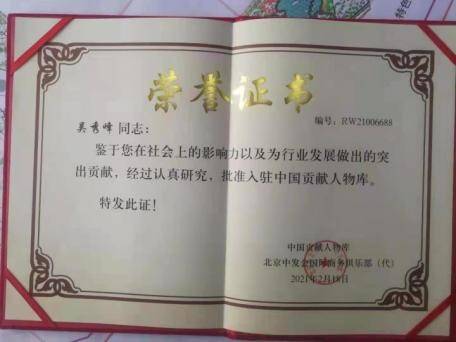 荣誉证书
编号：RW21006688
吴秀峰 同志：
鉴于您在社会上的影响力以及为行业发展做出的突
出贡献，经过认真研究，批准入驻中国贡献人物库。
特发此证！
中国贡献人物库
北京中发会国际商务俱乐部（代）
2021年2月18日
特色